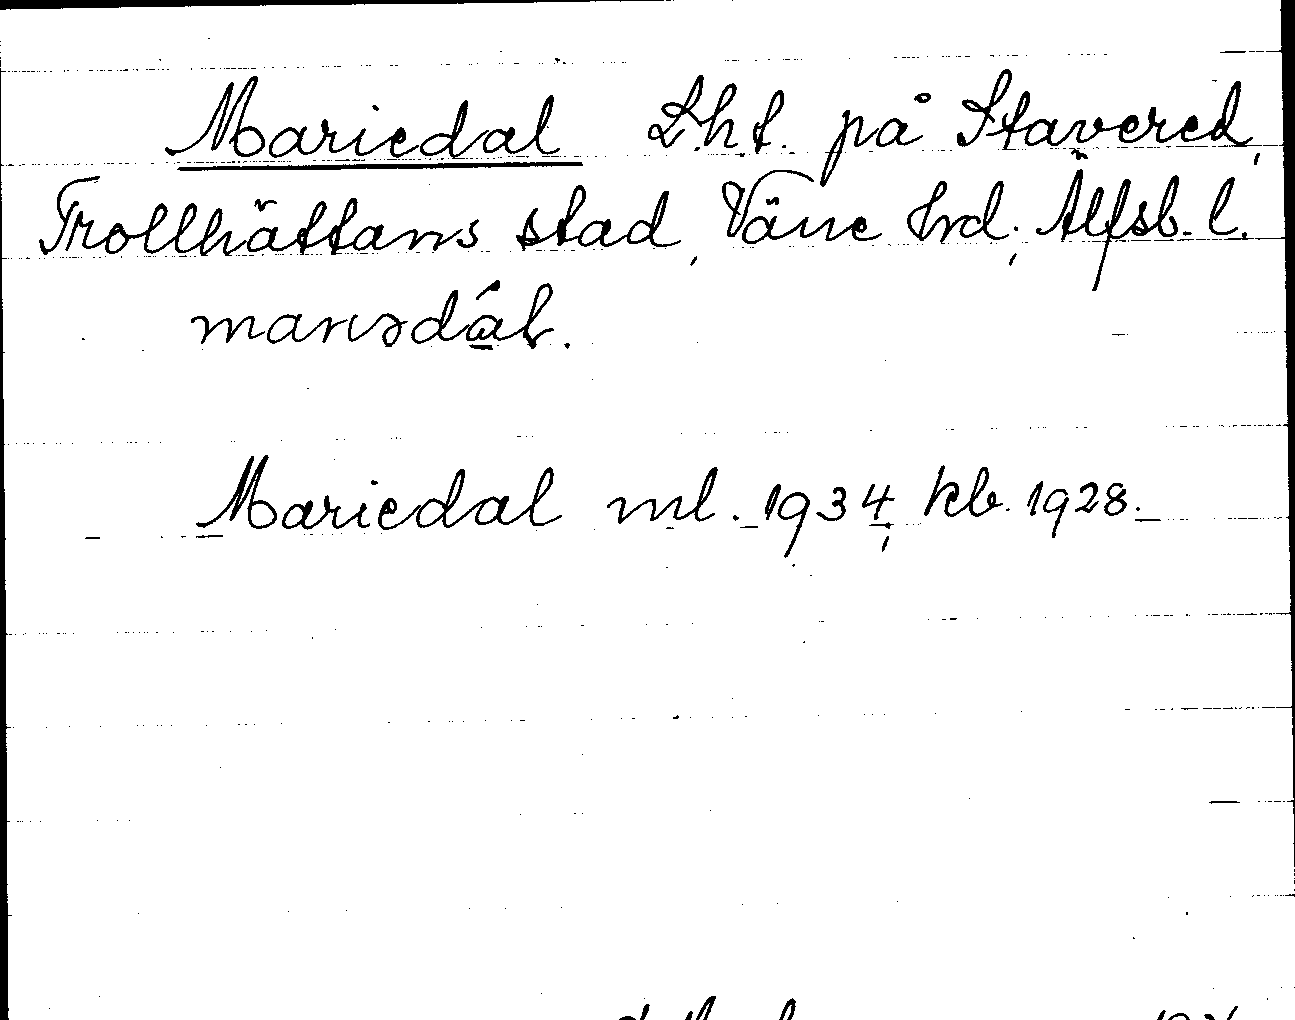 Mariedal Lht. på Stavered,
Trollhättans stad, Väne hd, Älfsb. l.
Mariedal ml. 1934, kb. 1928.